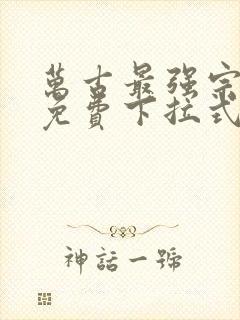 萬古最强宗
免費下拉式
神話一號